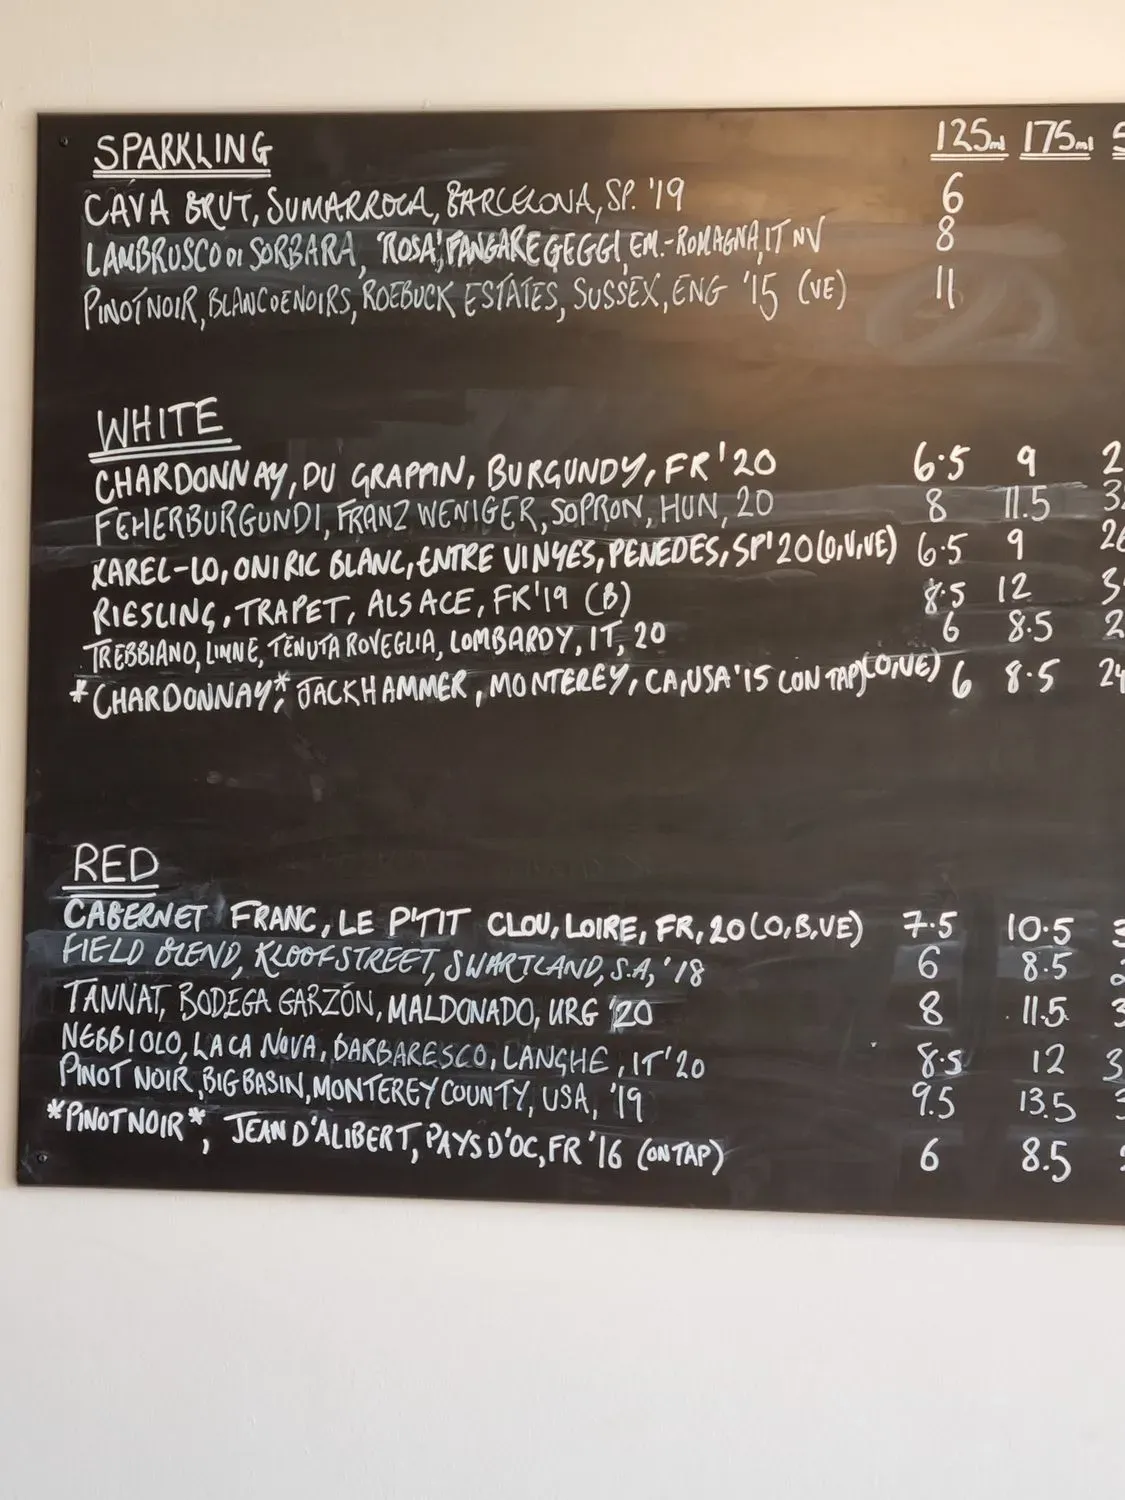 SPARKLING 125ml 175ml
CAVA BRUT, SUMARROCA, BARCELONA, SP. '19 6
LAMBRUSCO DI SORBARA, 'ROSA', FANGAREGEGGI, EM.-ROMAGNA, IT NV 8
PINOT NOIR, BLANC DE NOIRS, ROEBUCK ESTATES, SUSSEX, ENG '15 (VE) 11
WHITE
CHARDONNAY, DU GRAPPIN, BURGUNDY, FR '20 6.5 9
FEHERBURGUNDI, FRANZ WENIGER, SOPRON, HUN, 20 8 11.5
XAREL-LO, ONIRIC BLANC, ENTRE VINYES, PENEDES, SP '20 (O,V,VE) 6.5 9
RIESLING, TRAPET, ALSACE, FR '19 (B) 8.5 12
TREBBIANO, LIMNE, TENUTA ROVEGLIA, LOMBARDY, IT, 20 6 8.5
*CHARDONNAY*, JACKHAMMER, MONTEREY, CA, USA '15 (ON TAP) (O,VE) 6 8.5 24
RED
CABERNET FRANC, LE P'TIT CLOU, LOIRE, FR, 20 (O,B,VE) 7.5 10.5
FIELD BLEND, KLOOF STREET, SWARTLAND, S.A, '18 6 8.5
TANNAT, BODEGA GARZÓN, MALDONADO, URG '20 8 11.5
NEBBIOLO, LA CA NOVA, BARBARESCO, LANGHE, IT '20 8.5 12
PINOT NOIR, BIG BASIN, MONTEREY COUNTY, USA, '19 9.5 13.5
*PINOT NOIR*, JEAN D'ALIBERT, PAYS D'OC, FR '16 (ON TAP) 6 8.5